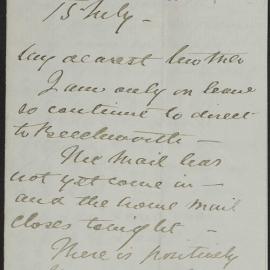 15 July -
My dearest Mother
I am only on leave
so continue to direct
to Beechworth -
The Mail has
not yet come in -
and the home mail
closes tonight -
There is positively